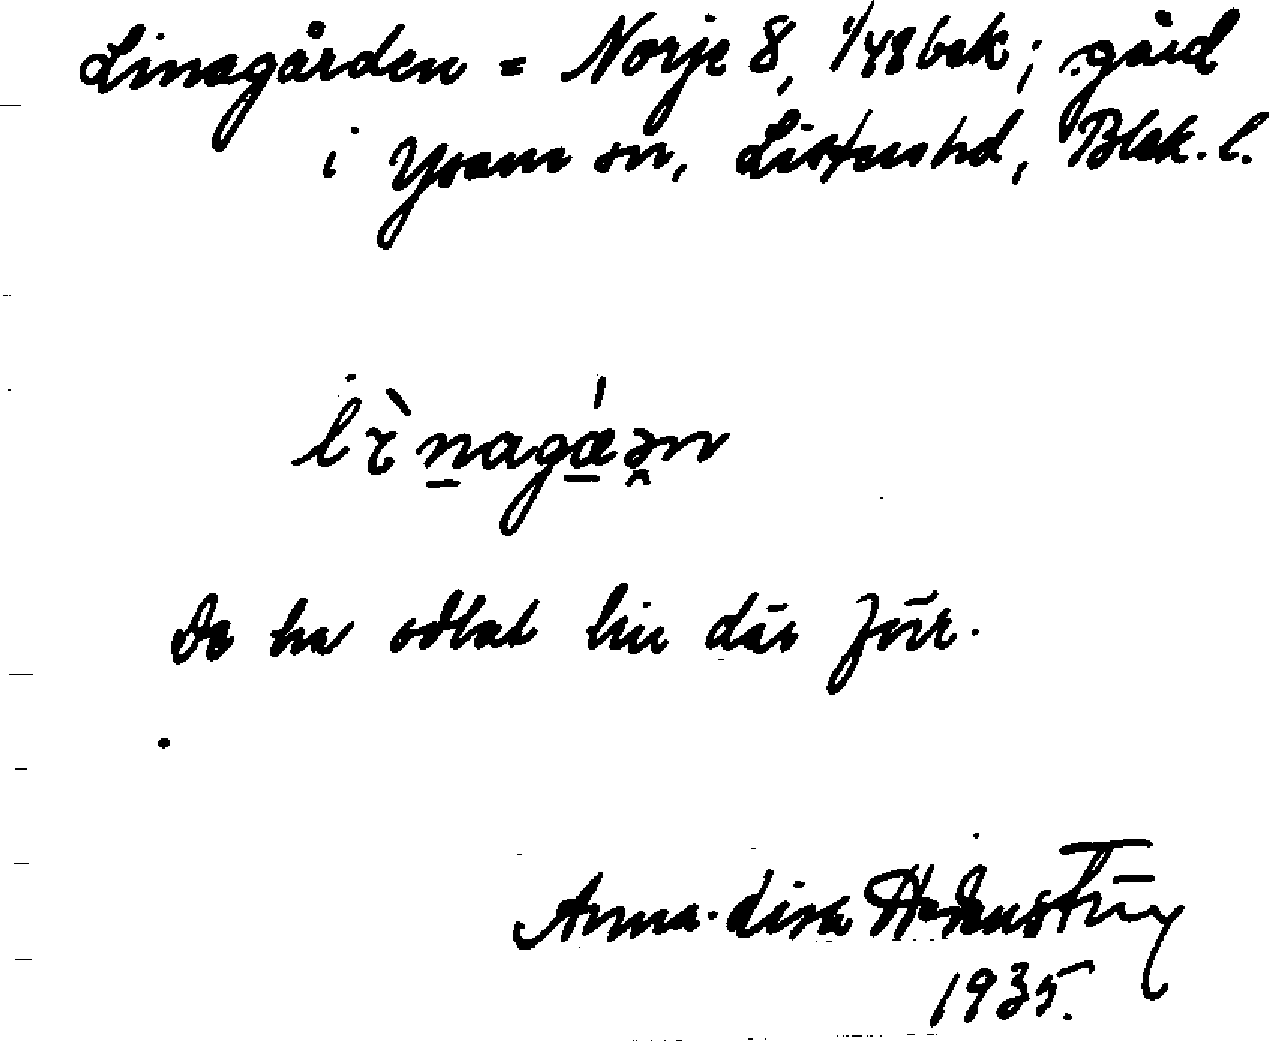 Linagården = Norje 8, 1/48 bsk; gård
i Ysane sn, Listers hd, Blek. l.
lìnagá̱ə̯n
De ha odlat lin där förr.
Anna-Lisa
1935.